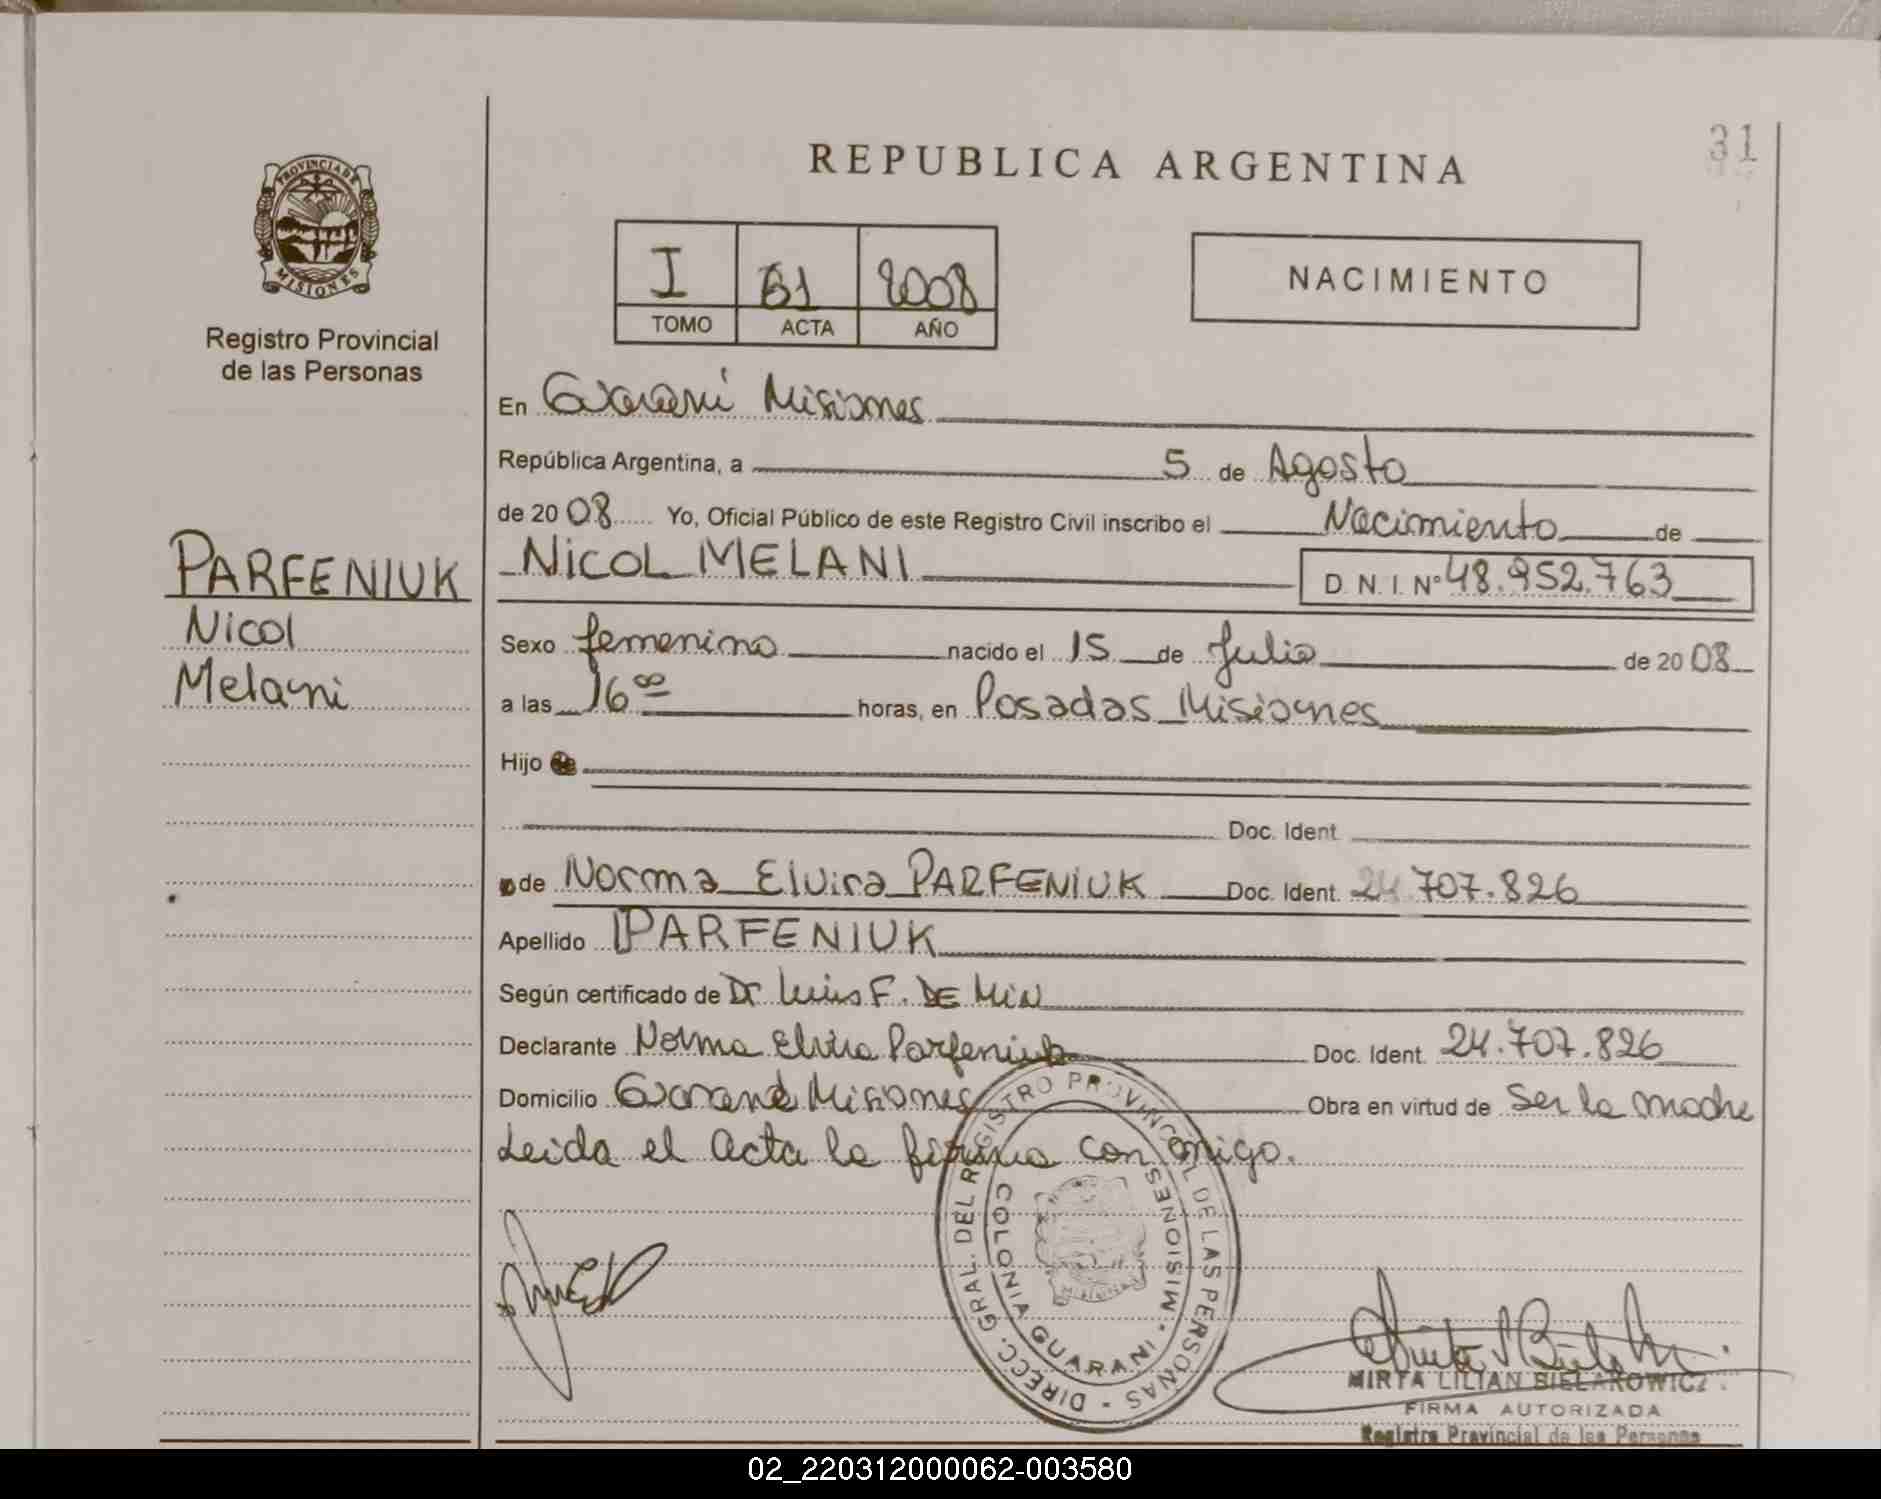 31
REPUBLICA ARGENTINA
PROVINCIA DE
MISIONES
Registro Provincial
de las Personas
I 61 2008
TOMO ACTA AÑO
NACIMIENTO
En Guaraní Misiones
República Argentina, a 5 de Agosto
de 2008 Yo, Oficial Público de este Registro Civil inscribo el Nacimiento de
PARFENIUK
Nicol
Melani
NICOL MELANI D. N. I. Nº 48.952.763
Sexo femenino nacido el 15 de Julio de 2008
a las 16 00 horas, en Posadas Misiones
Hijo
Doc. Ident.
de Norma Elvira PARFENIUK Doc. Ident. 24.707.826
Apellido PARFENIUK
Según certificado de Dr Luis F. DE MIN
Declarante Norma Elvira Parfeniuk Doc. Ident. 24.707.826
Domicilio Guaraní Misiones Obra en virtud de Ser la madre
Leida el acta la firma con migo.
DIRECC. GRAL. DEL REGISTRO PROVINCIAL DE LAS PERSONAS -
COLONIA GUARANI - MISIONES
MIRTA LILIAN BIELAKOWICZ
FIRMA AUTORIZADA
Registro Provincial de las Personas
02_220312000062-003580